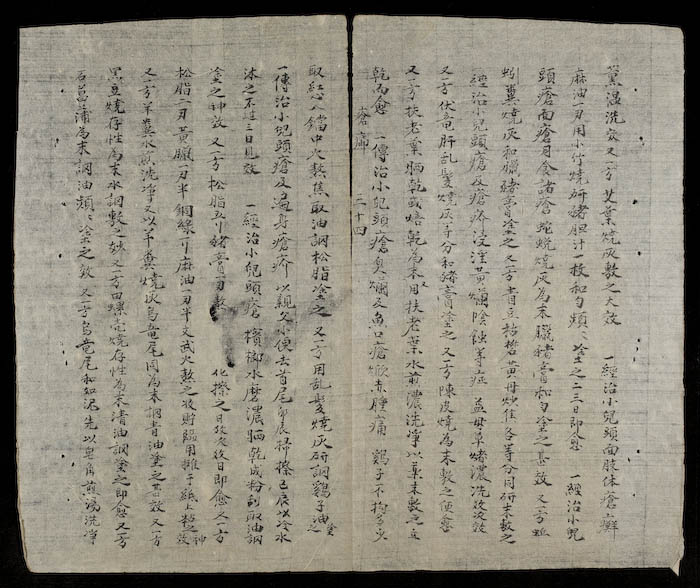 薫温洗安又一方艾葉燒灰敷之大效　一經治小兒頭面肢体瘡癬
麻油一刃用小竹燒研猪胆汁一枚和勻頻〻塗之二三日即愈　一經治小兒
頭瘡面瘡月食諸瘡蛇蛻燒灰為末臘猪膏和勻塗之甚效　又一方蚯
蚓糞燒灰和臘猪膏塗之又一方青豆枯礬黃丹各等分同研末敷之
一經治小兒頭瘡及瘡疥浸淫黃爛陰蝕等症　益母草煮濃洗次次效
又一方伏竜肝乱髮燒灰等分和猪膏塗之又一方陳皮燒為末敷之便
又一方扶老葉晒乾或焙乾為末用扶老葉水煎濃洗净以葉末敷之立
乾而愈　一傳治小兒頭瘡臭爛及魚口瘡嫩赤腫痛　鷄子不拘多少
瘡癤　二十四
取入鐺中火熬焦取油調松脂塗之　又一方用乱髮燒灰研調鷄子油塗之
一傳治小兒頭瘡及遍身瘡疥　以親父小便去首尾掃擦已辰以冷水
沐之不過三日見效　一經治小兒頭瘡　檳榔水磨濃晒乾成粉刮取油調
塗之神效　又一方　松脂五刂猪膏一刃熬　化擦之日次后日即愈　又一方
松脂二刃黃臘一刃半銅綠一刂麻油一刃半文武火熬之收貯臨用攤于紙上貼之神效
又一方羊糞水煎洗净又以羊糞燒灰烏竜尾同為末調青油塗之甚效又一方
黑豆燒存性為末水調敷之妙又一方田螺壳燒存性為末清油調塗之即愈又一方
石菖蒲為末調油頻〻塗之效　又一方烏竜尾和如泥先以皂角煎湯洗净